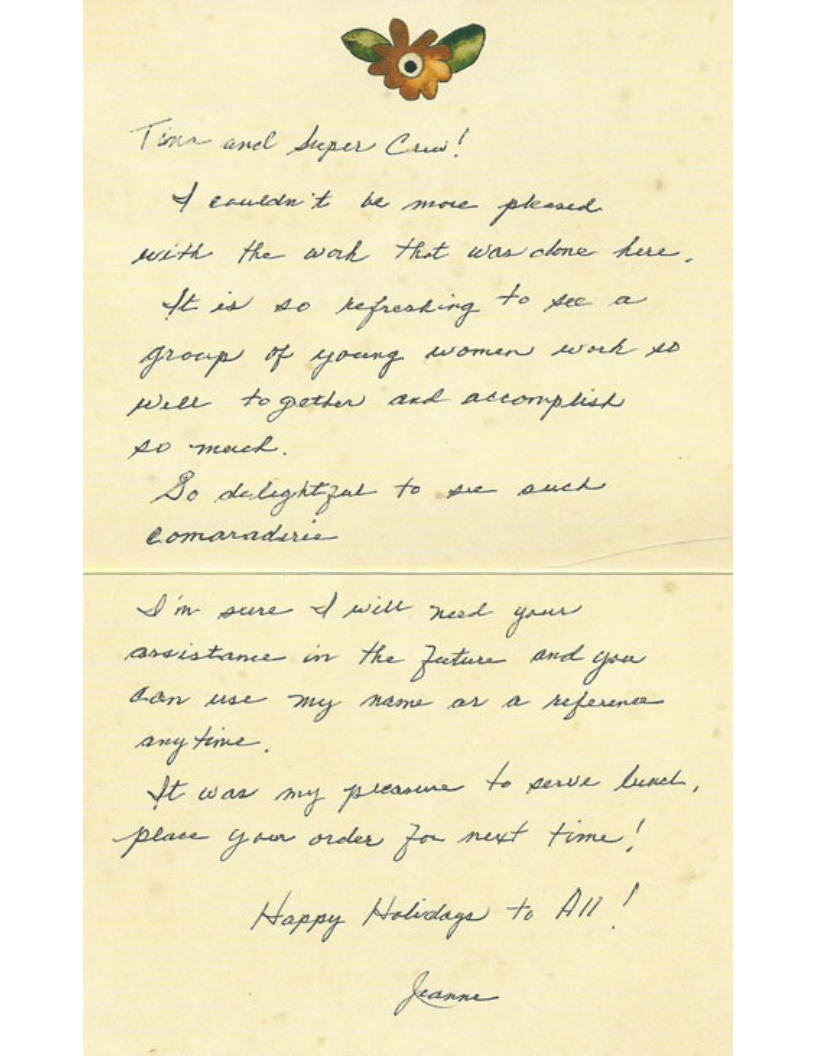 Tina and Super Crew!
I couldn't be more pleased
with the work that was done here.
It is so refreshing to see a
group of young women work so
well together and accomplish
so much.
So delightful to see such
comaraderie
I'm sure I will need your
assistance in the future and you
can use my name as a reference
anytime.
It was my pleasure to serve lunch,
place your order for next time!
Happy Holidays to All!
Jeanne